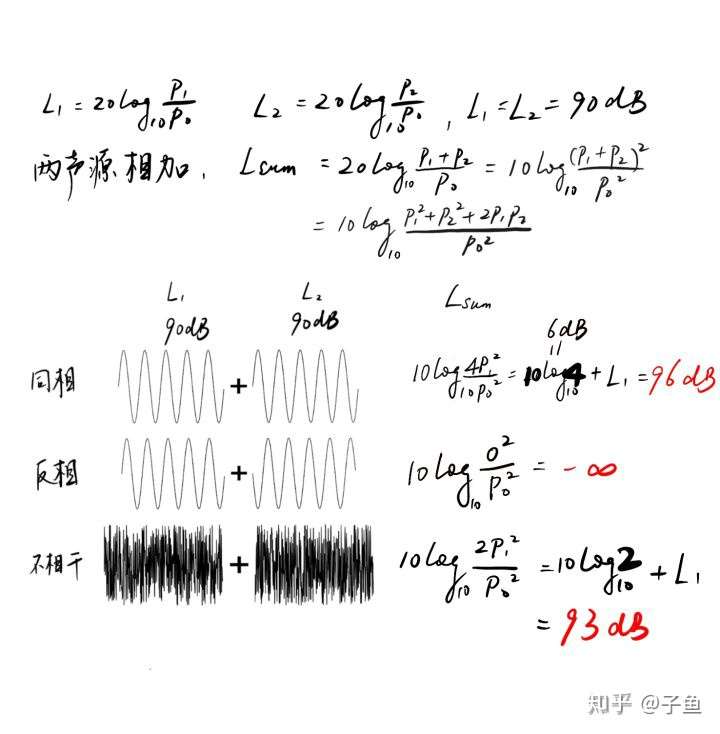 L₁ = 20log₁₀ P₁/P₀   L₂ = 20log₁₀ P₂/P₀ , L₁ = L₂ = 90dB
两声源相加, Lsum = 20log₁₀ (P₁+P₂)/P₀ = 10log₁₀ (P₁+P₂)²/P₀²
= 10log₁₀ (P₁²+P₂²+2P₁P₂)/P₀²
L₁ L₂ Lsum
90dB 90dB
6dB
=
同相 + 10log₁₀ 4P₁²/P₀² = 10log₁₀4 + L₁ = 96dB
反相 + 10log₁₀ 0²/P₀² = -∞
不相干 + 10log₁₀ 2P₁²/P₀² = 10log₁₀2 + L₁
= 93dB
知乎 @子鱼